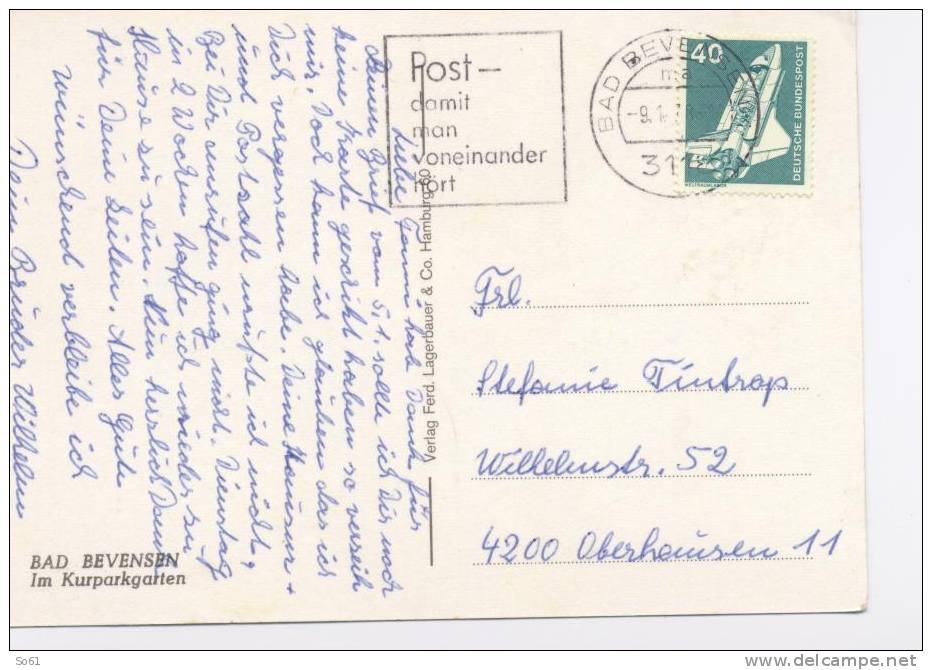 Liebe Fanni hab Dank für
deinen Brief vom 5,1. sollte ich Dir noch
keine Karte geschribt haben so verseih
mir, Doch kann ich glauben das ich
Dich vergessen habe. Deine Hausnr +
und Postzahl wuste ich nicht,
Bei Dir anrufen ging nicht. Dienstag
in 2 Wochen hoffe ich wieder zu
Hause zu sein. Nun herzlich Dank
für Deine Zeilen. Alles Gute
wünschend verbleibe ich
Dein Bruder Wilhelm
BAD BEVENSEN
Im Kurparkgarten
Verlag Ferd. Lagerbauer & Co. Hamburg 60
Post –
damit
man
voneinander
hört
BAD BEVENSE
ma
-9.1.
311
40
DEUTSCHE BUNDESPOST
WELTRAUMLABOR
Frl.
Stefanie Tintrop
Willhelmstr. 52
4200 Oberhausen 11
So61
www.delcampe.net